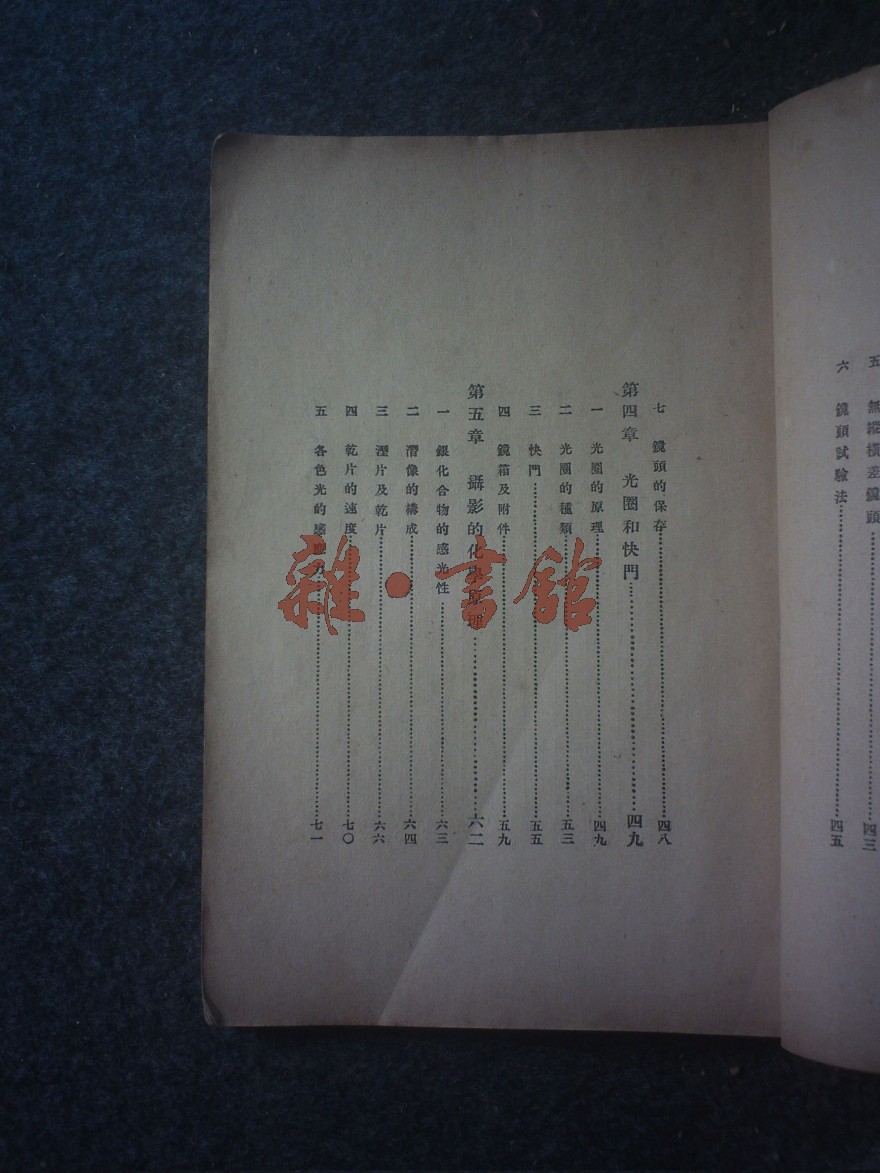 五 無縱橫差鏡頭……四三
六 鏡頭試驗法……四五
七 鏡頭的保存……四八
第四章 光圈和快門……四九
一 光圈的原理……四九
二 光圈的種類……五三
三 快門……五五
四 鏡箱及附件……五九
第五章 攝影的化學原理……六二
一 銀化合物的感光性……六三
二 潛像的構成……六四
三 溼片及乾片……六六
四 乾片的速度……七〇
五 各色光的感應力……七一
雜·書館